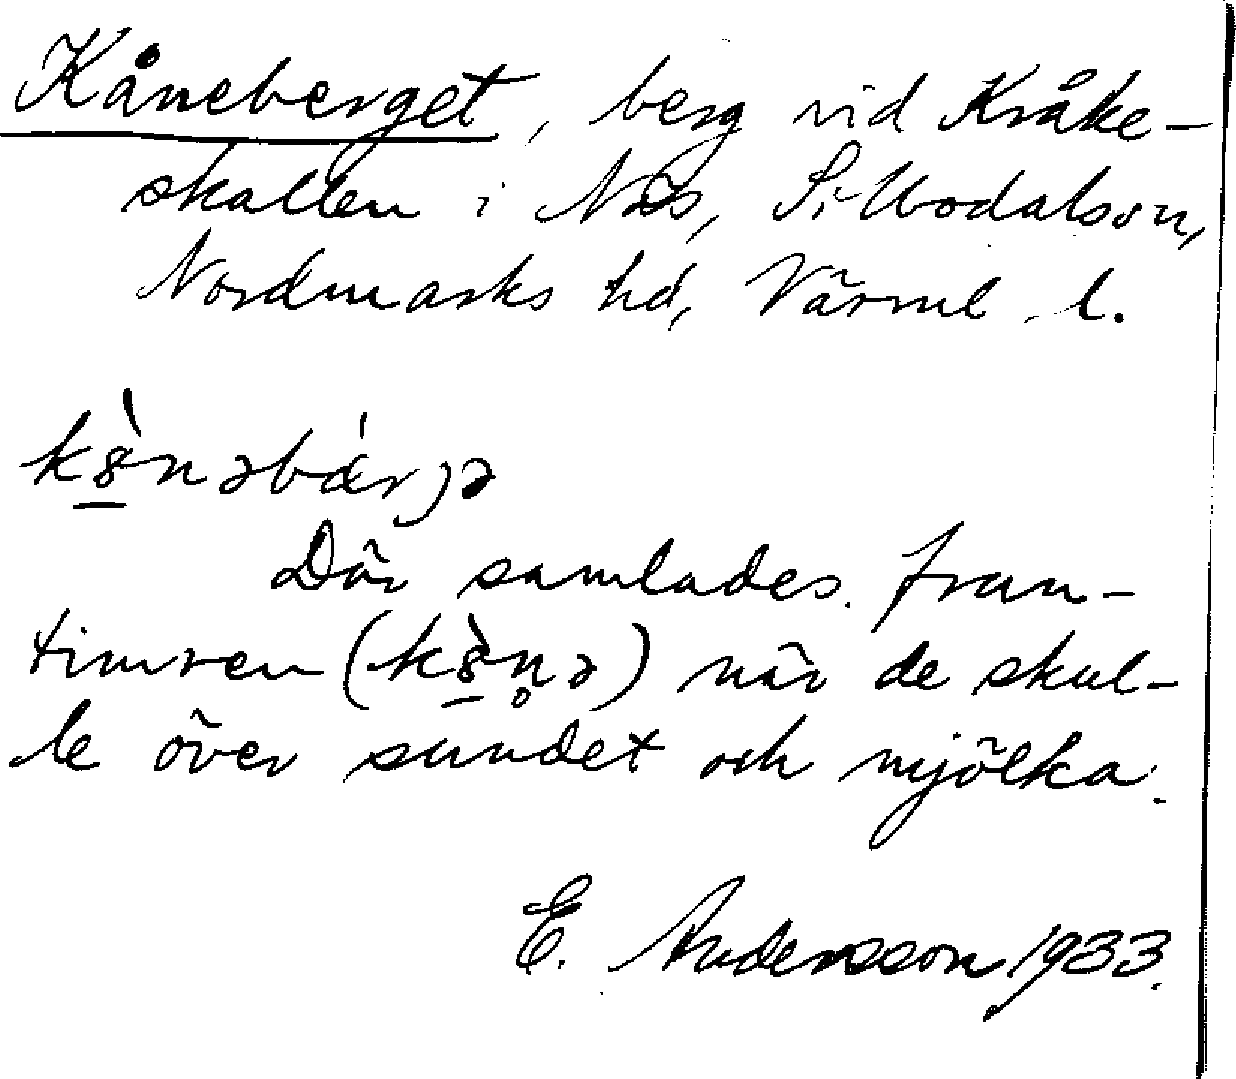 Kåneberget, berg vid Kråke-
skallen i Näs, Sillbodals sn,
Nordmarks hd, Värml. l.
Där samlades frun-
timren ( ) när de skul-
le över sundet och mjölka.
E. Andersson 1933.